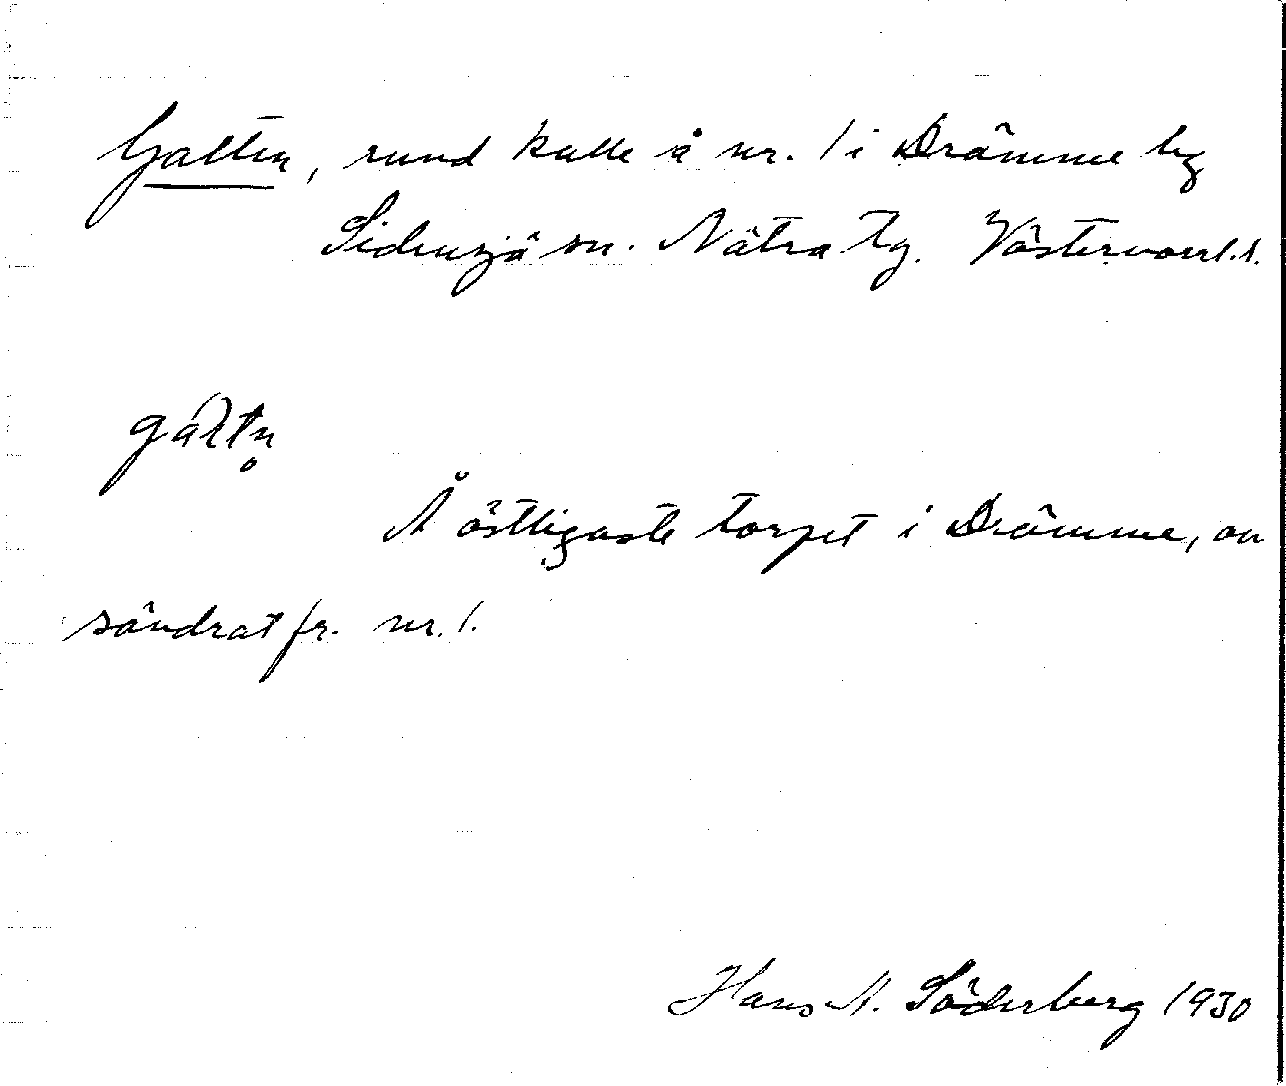 Galten, rund kulle å nr. 1 i Drömme by
Sidensjö sn. Nätra tg. Västernorrl. l.
gal̥tn̥
Å östligaste torpet i Drömme, av
söndrat fr. nr. 1.
Hans A. Söderberg 1930